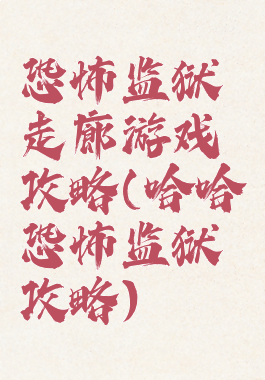 恐怖监狱
走廊游戏
攻略(哈哈
恐怖监狱
攻略)